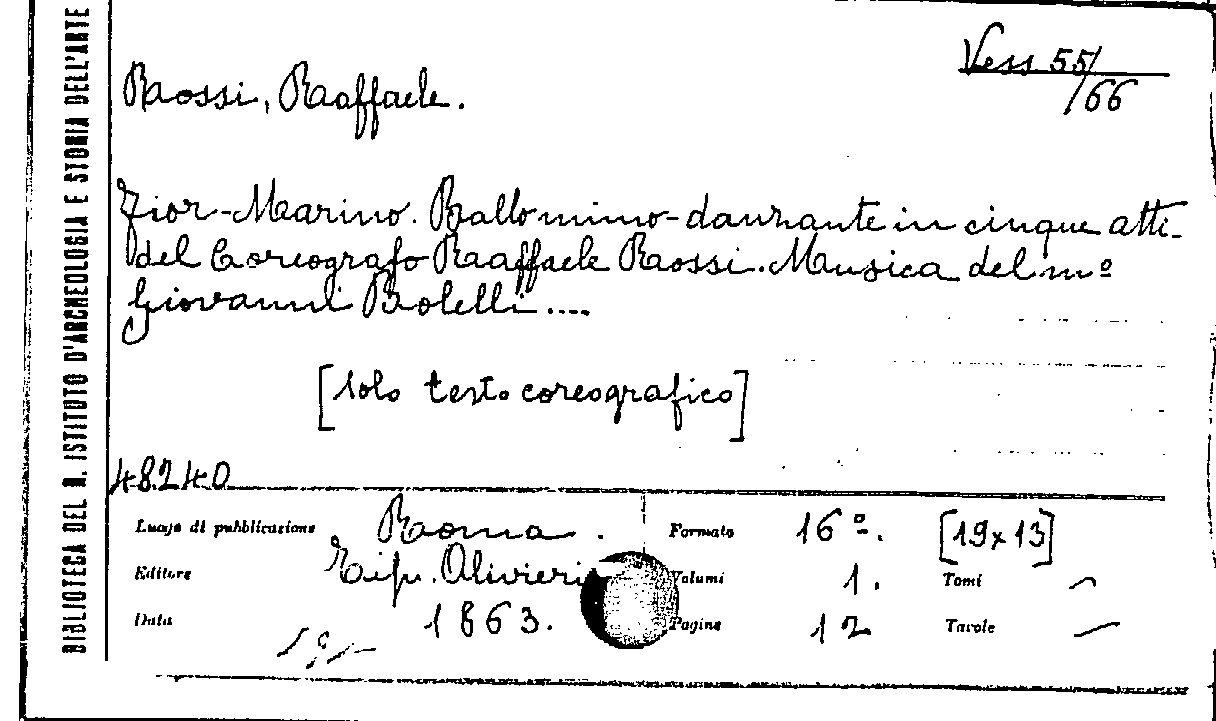 BIBLIOTECA DEL R. ISTITUTO D'ARCHEOLOGIA E STORIA DELL'ARTE
Vess 55/
/66
Rossi, Raffaele.
Fior-Marino. Ballo mimo-danzante in cinque atti
del Coreografo Raffaele Rossi. Musica del mº
Giovanni Bolelli ....
[solo testo coreografico]
48240
Luogo di pubblicazione Roma. Formato 16º. [19x13]
Editore Tip. Olivieri Volumi 1. Tomi —
Data 1863. Pagine 12 Tavole —